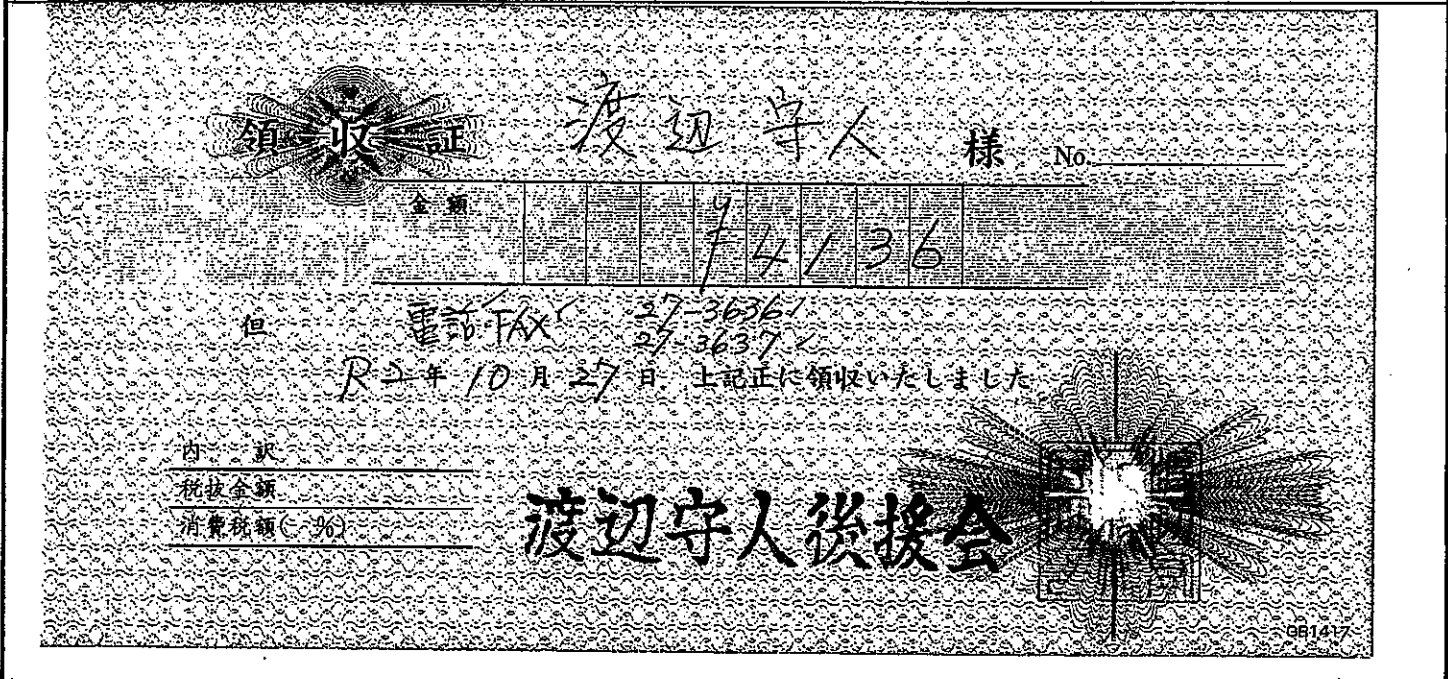 領収証 渡辺守人 様 No.
金額 ¥4136
但 電話・FAX 27-3636
27-3637
R2年10月27日 上記正に領収いたしました
内訳
税抜金額
消費税額( %)
渡辺守人後援会
GB1417